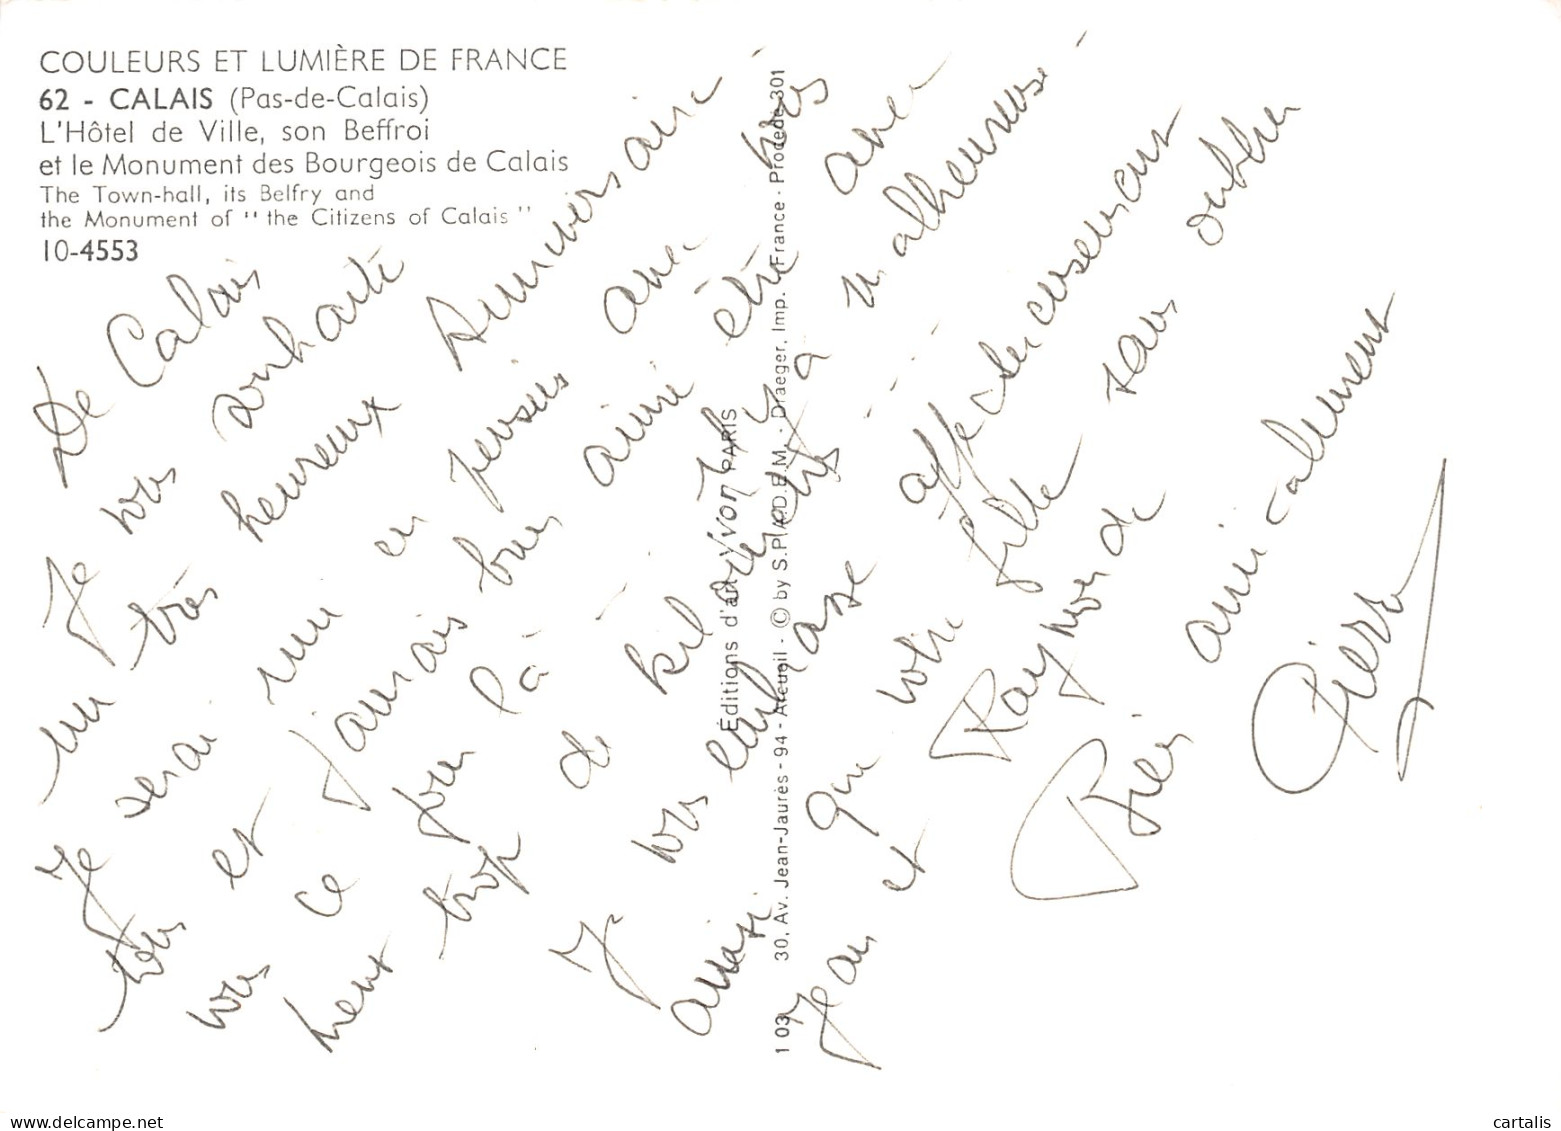 COULEURS ET LUMIÈRE DE FRANCE
62 - CALAIS (Pas-de-Calais)
L'Hôtel de Ville, son Beffroi
et le Monument des Bourgeois de Calais
The Town-hall, its Belfry and
the Monument of " the Citizens of Calais "
10-4553
De Calais
Je vous souhaite
un très heureux Anniversaire
Je serai en pensées avec vous
tous et j'aurais bien aimé être avec
vous ce jour là
il y a malheureuse
ment trop de kilomètres
Je vous embrasse affectueusement
ainsi que votre fille sans oublier
Jean et Raymonde
Bien amicalement
Pierre
Éditions d'art Yvon PARIS
1 03 30, Av. Jean-Jaurès - 94 - Arcueil - © by S.P.A.D.E.M. - Draeger, Imp. - France - Procédé 301
www.delcampe.net
cartalis